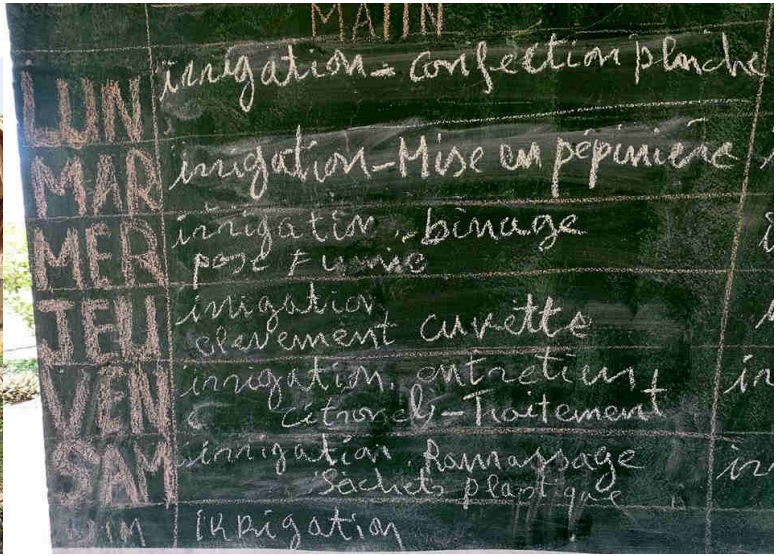 MATIN
LUN irrigation - confection planche
MAR irrigation - Mise en pépinière
MER irrigation, binage
pose Fumie
JEU irrigation,
elevement cuvette
VEN irrigation, entretien,
citronels - Traitement
SAM irrigation, Ramassage
Sachets plastique
DIM IRRigation